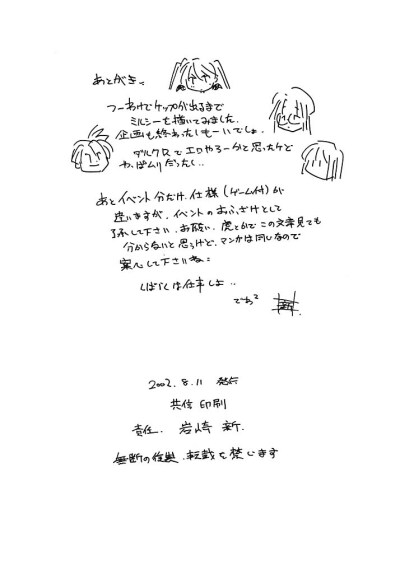 あとがき、
つーわけでゲップが出るまで
ミルシーを描いてみました。
企画も終わったしもーいいでしょ。
ダルクRでエロやろーかと思ったけど
やっぱムリだった‥
あとイベント分だけ、仕様(ゲーム付)が
違いますが、イベントのおふざけとして
了承して下さい、お願い、虎とかでこの文章見ても
分からないと思うけど、マンガは同じなので
安心して下さいね
しばらくは仕事しよ‥
では
2002.8.11 発行
共信印刷
責任. 岩崎 新.
無断の複製、転載を禁じます